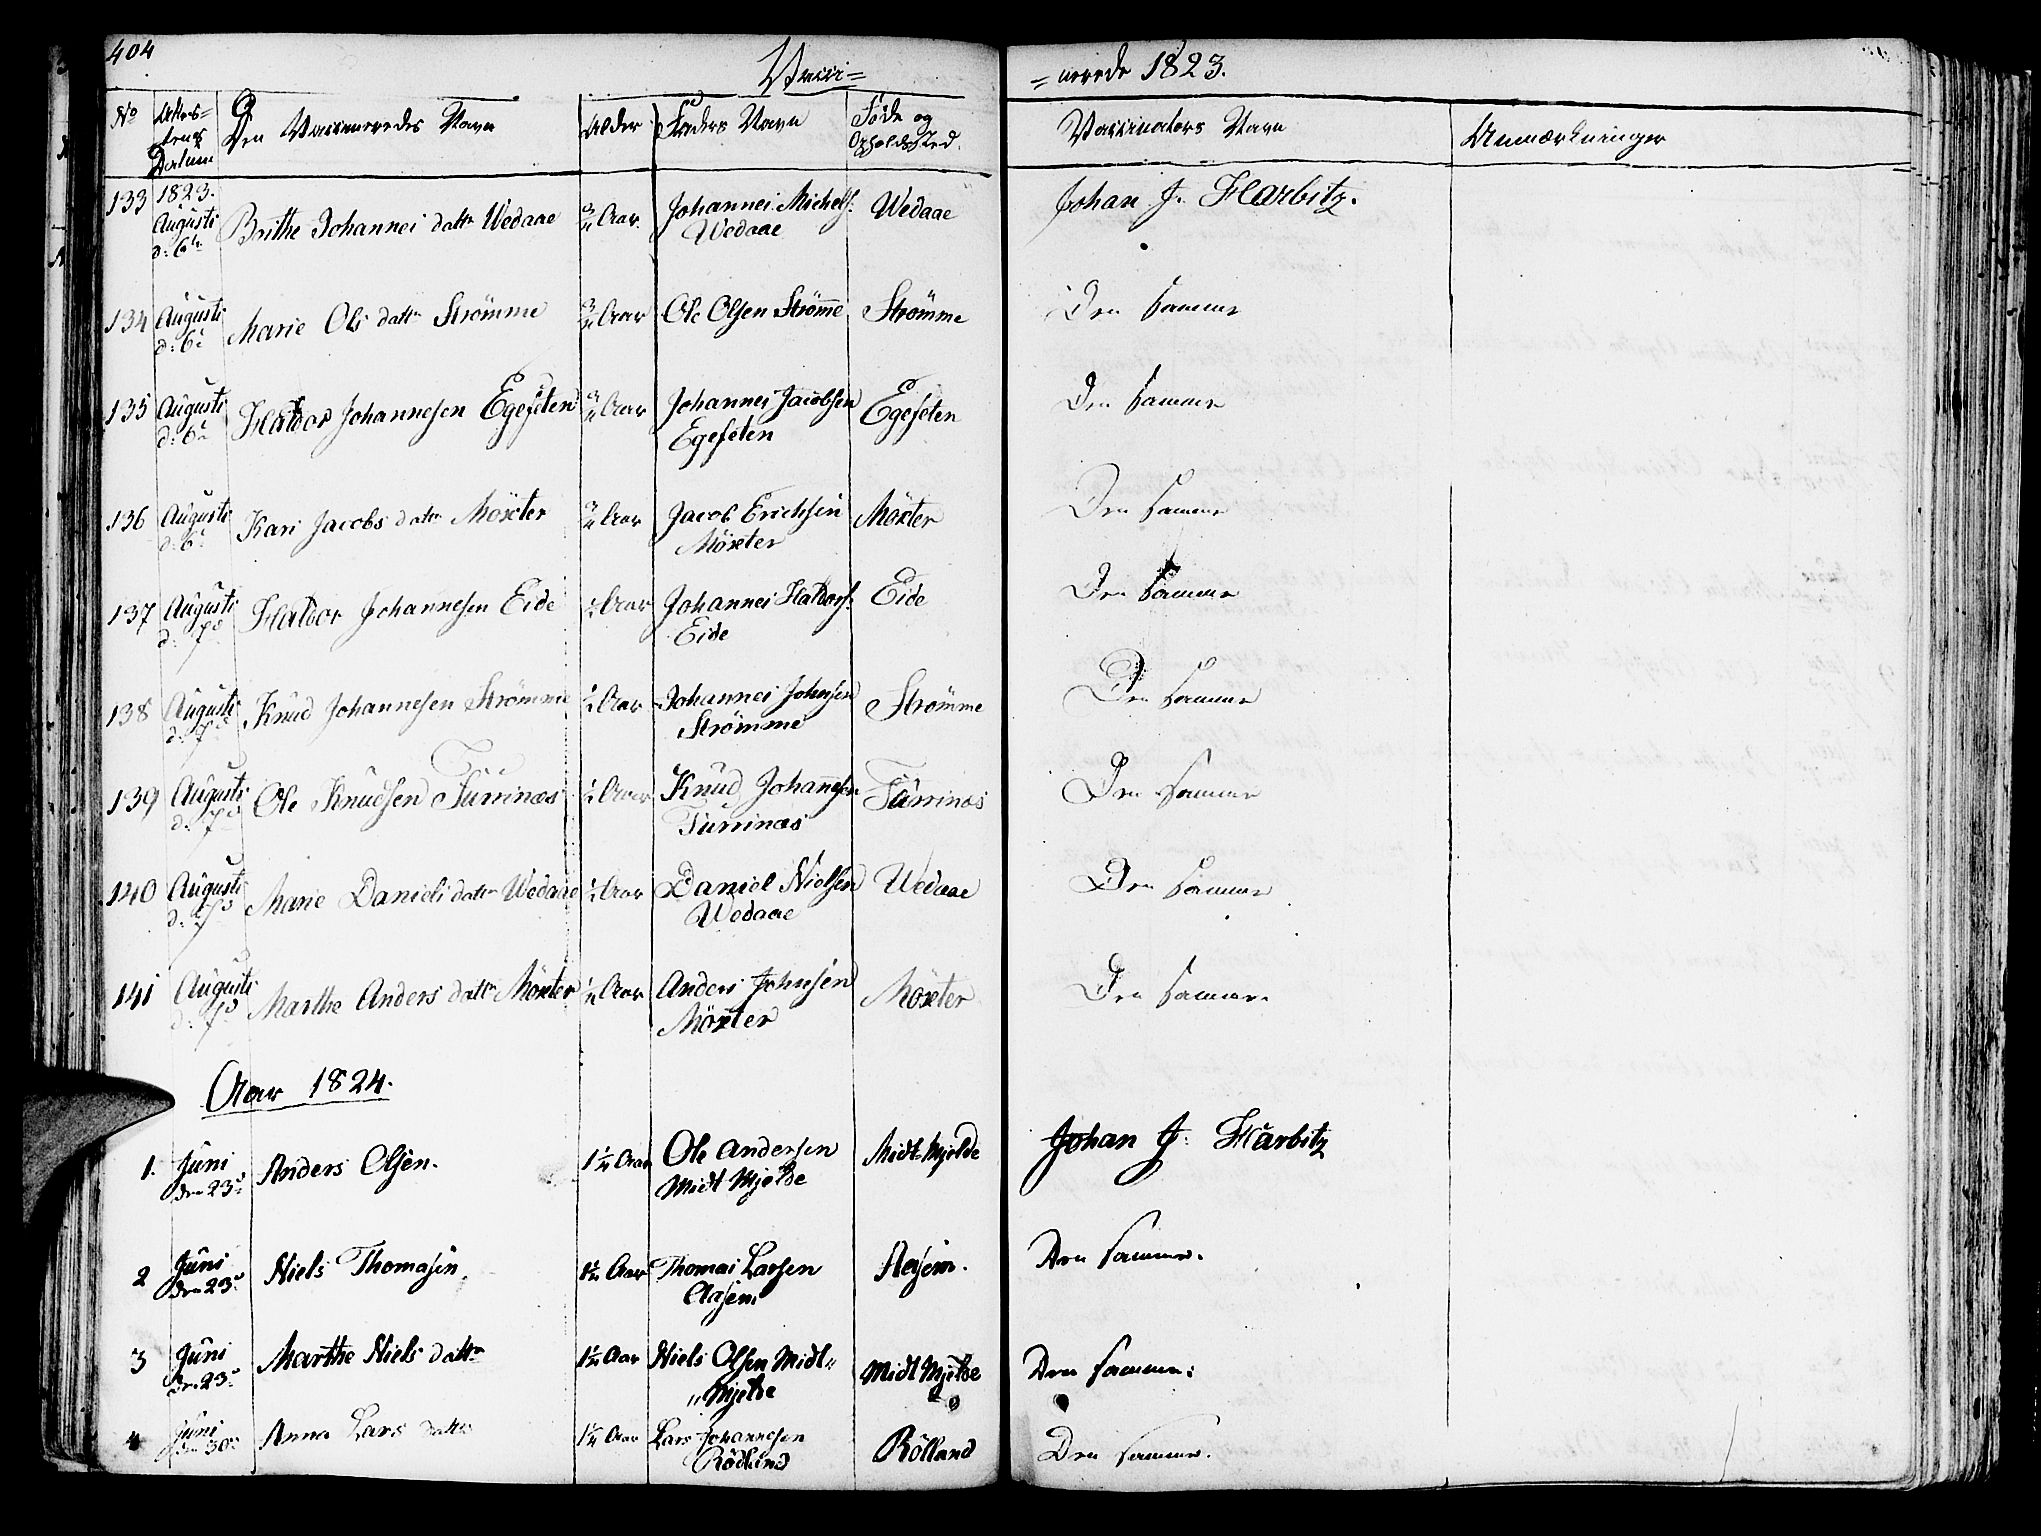 404
Vacci=
=nerede 1823.
No Attestens Datum Den Vaccineredes Navn Alder Faders Navn Føde og Opholdssted. Vaccinators Navn Anmærkninger
133 1823. Augusti d: 6te Brithe Johannes datter Wedaae 3/4 Aar. Johannes Michels: Wedaae Wedaae Johan J. Harbitz.
134 Augusti d: 6te Marie Ols datter Strömme 3/4 Aar Ole Olsen Strömme Strömme Den samme
135 Augusti d: 6te Haldor Johannesen Egeseten 3/4 Aar Johannes Jacobsen Egeseten Egeseten Den samme
136 Augusti d: 6te Kari Jacobs datter Möxter 3/4 Aar Jacob Erichsen Möxter Möxter Den samme
137 Augusti d: 7de Haldor Johannesen Eide Aar Johannes Haldors: Eide Eide Den samme
138 Augusti d: 7de Knud Johannesen Strömme Aar Johannes Johnsen Strömme Strömme Den samme
139 Augusti d: 7de Ole Knudsen Turrinæs Aar Knud Johannesen Turrinæs Turrinæs Den samme
140 Augusti d: 7de Marie Daniels datter Wedaae Aar Daniel Nielsen Wedaae Wedaae Den samme
141 Augusti d: 7de Marthe Anders datter Möxter Aar Anders Johnsen Möxter Möxter Den samme
Aar 1824.
1. Juni den 23de Anders Olsen. Aar Ole Andersen Midt Mjelde Midt-Mjelde Johan J: Harbitz
2 Juni den 23de Niels Thomasen Aar Thomas Larsen Aasem Aasem. Den samme.
3 Juni den 23de Marthe Niels datter Aar Niels Olsen Midt„ „Mjelde Midt Mjelde Den samme:
4 Juni den 30de Anna Lars datter Aar Lars Johannesen Rödland Rölland Den samme.